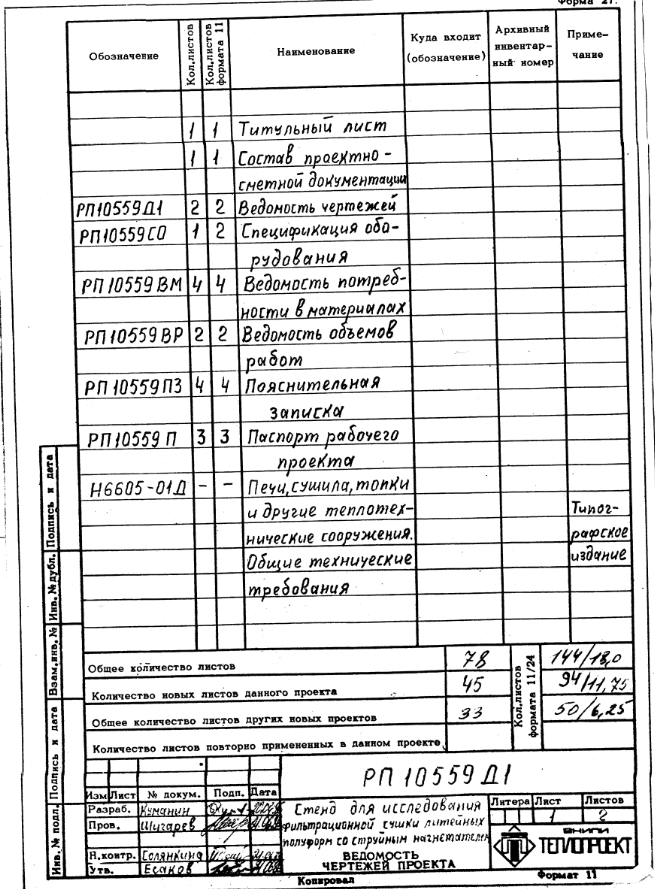 Форма 21.
Обозначение
Кол.листов
Кол.листов формата 11
Наименование
Куда входит (обозначение)
Архивный инвентар- ный номер
Приме- чание
1 1 Титульный лист
1 1 Состав проектно-
сметной документации
РП10559Д1 2 2 Ведомость чертежей
РП10559СО 1 2 Спецификация обо-
рудования
РП10559ВМ 4 4 Ведомость потреб-
ности в материалах
РП10559ВР 2 2 Ведомость объемов
работ
РП10559ПЗ 4 4 Пояснительная
записка
РП10559П 3 3 Паспорт рабочего
проекта
Н6605-01Д - - Печи, сушила, топки
и другие теплотех- Типог-
нические сооружения. рафское
Общие технические издание
требования
Общее количество листов 78 144/18,0
Количество новых листов данного проекта 45 94/11,75
Общее количество листов других новых проектов 33 50/6,25
Количество листов повторно примененных в данном проекте
Кол.листов формата 11/24
РП 10559Д1
Изм Лист № докум. Подп. Дата
Разраб. Куманин
Пров. Шугарев
Н.контр. Солянкина
Утв. Есаков
Стенд для исследования
фильтрационной сушки литейных
полуформ со струйным нагнетателем
ВЕДОМОСТЬ
ЧЕРТЕЖЕЙ ПРОЕКТА
Литера Лист Листов
1 2
ВНИПИ
ТЕПЛОПРОЕКТ
Копировал
Формат 11
Инв.№ подл.
Подпись и дата
Взам.инв. №
Инв. № дубл.
Подпись и дата